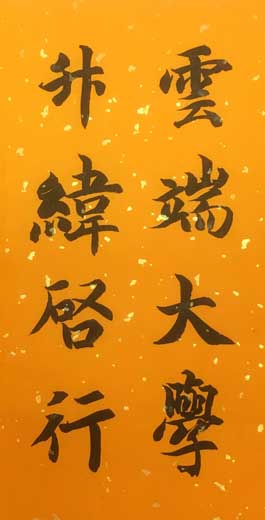 雲端大學
升緯啓行